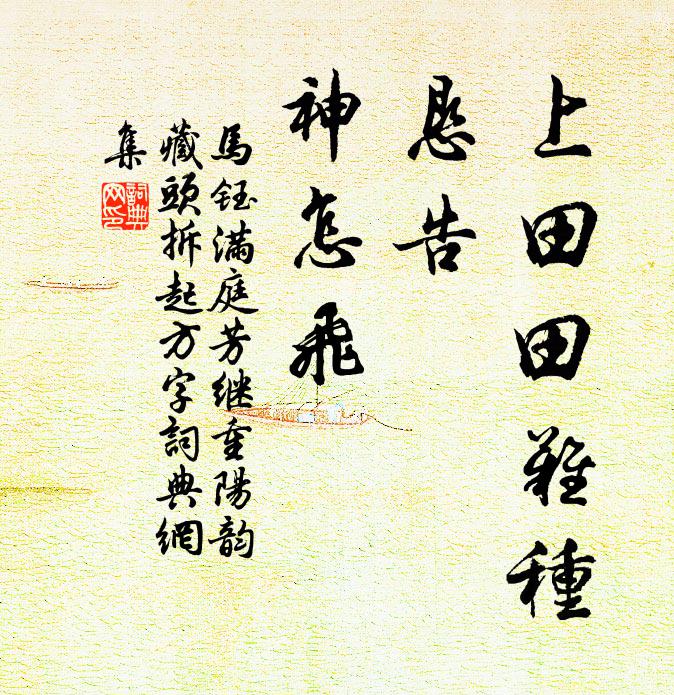 上田田難種
恳告
神怎飛
馬鈺滿庭芳继重陽韵
藏頭拆起方字詞典網
集
詞典网印